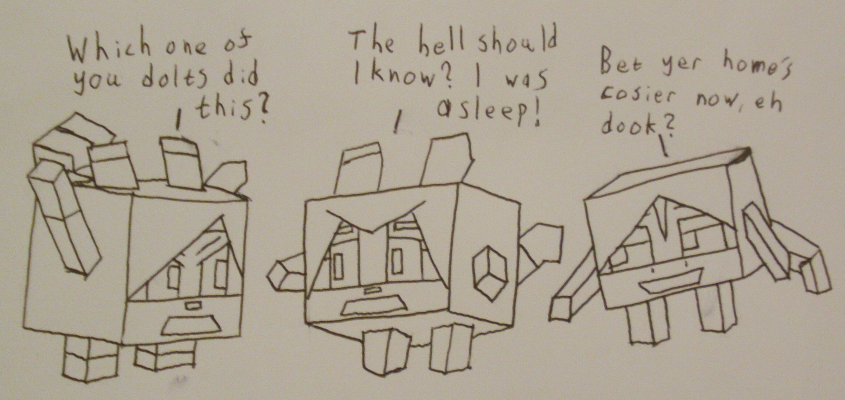 Which one of
you dolts did
this?
The hell should
I know? I was
asleep!
Bet yer home's
cosier now, eh
dook?